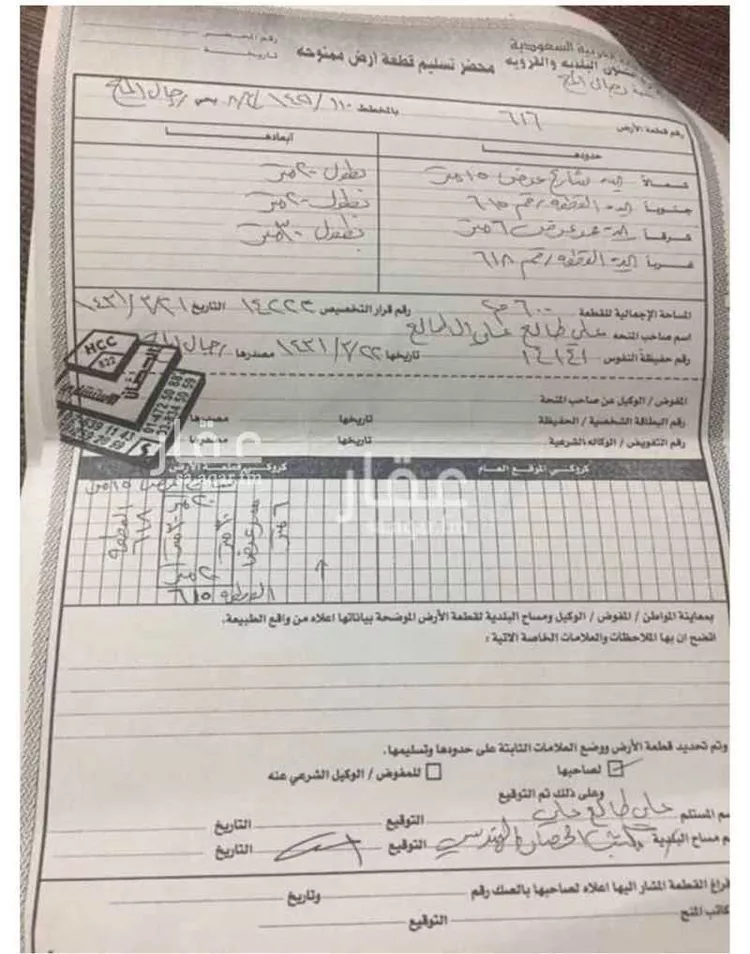 العربية السعودية
الشئون البلدية والقروية
رجال المع
محضر تسليم قطعة أرض ممنوحه
رقم المحضر
تاريخه
رقم قطعة الأرض ٦١٦ بالمخطط رجال المع
حدودها
أبعادها
شمالاً يحده شارع عرض ١٥ متر بطول ٢٠ متر
جنوباً يحده القطعة رقم ٦١٥ بطول ٢٠ متر
شرقاً يحده ممر عرض ٦ متر بطول ٣٠ متر
غرباً يحده القطعة رقم ٦١٨
المساحة الإجمالية للقطعة ٦٠٠ م رقم قرار التخصيص ١٤٢٢٣ التاريخ
اسم صاحب المنحه علي طالع علي الطالع
رقم حفيظة النفوس ١٤١٤١ تاريخها ١٤٣١/٢/٢٢ مصدرها رجال المع
HCC
822
المفوض / الوكيل عن صاحب المنحة
رقم البطاقة الشخصية / الحفيظة تاريخها مصدرها
رقم التفويض / الوكاله الشرعية تاريخها مصدرها
عقار
sa.aqar.fm
عقار
sa.aqar.fm
كروكي الموقع العام
كروكي قطعة الأرض
شارع عرض ١٥ متر
٢٠ متر
القطعة ٦١٨
٣٠ متر
٣٠ متر
ممر عرض ٦ متر
٢٠ متر
القطعة ٦١٥
بمعاينة المواطن / المفوض / الوكيل ومساح البلدية لقطعة الأرض الموضحة بياناتها اعلاه من واقع الطبيعة.
اتضح ان بها الملاحظات والعلامات الخاصة الاتية :
وتم تحديد قطعة الأرض ووضع العلامات الثابتة على حدودها وتسليمها.
لصاحبها
للمفوض / الوكيل الشرعي عنه
وعلى ذلك تم التوقيع
سم المستلم علي طالع علي التوقيع التاريخ
م مساح البلدية مكتب الحصان الهندسي التوقيع التاريخ
فراغ القطعة المشار اليها اعلاه لصاحبها بالصك رقم وتاريخ
كاتب المنح التوقيع